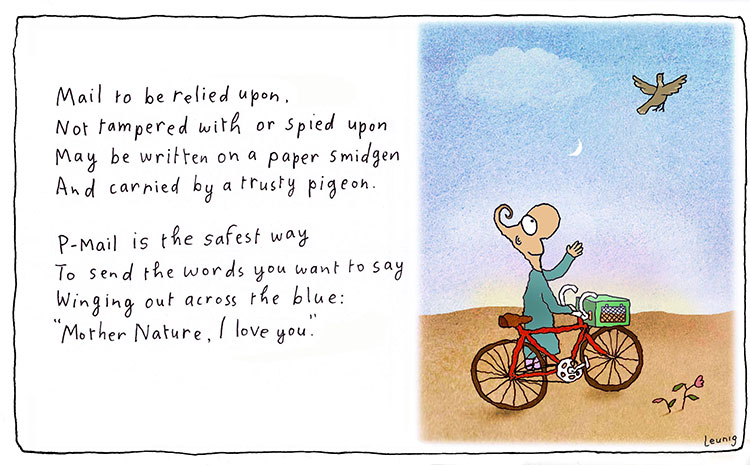 Mail to be relied upon,
Not tampered with or spied upon
May be written on a paper smidgen
And carried by a trusty pigeon.
P-Mail is the safest way
To send the words you want to say
Winging out across the blue:
"Mother Nature, I love you."
Leunig